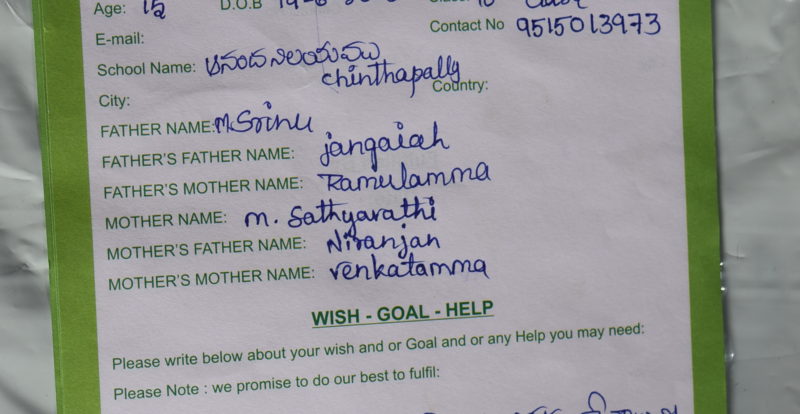 Age: 15
D.O.B
Contact No 9515013973
E-mail:
School Name: ఆనంద నిలయము
chinthapally
City: Country:
FATHER NAME: M. Srinu
FATHER'S FATHER NAME: jangaiah
FATHER'S MOTHER NAME: Ramulamma
MOTHER NAME: m. Sathyavathi
MOTHER'S FATHER NAME: Niranjan
MOTHER'S MOTHER NAME: venkatamma
WISH - GOAL - HELP
Please write below about your wish and or Goal and or any Help you may need:
Please Note : we promise to do our best to fulfil: